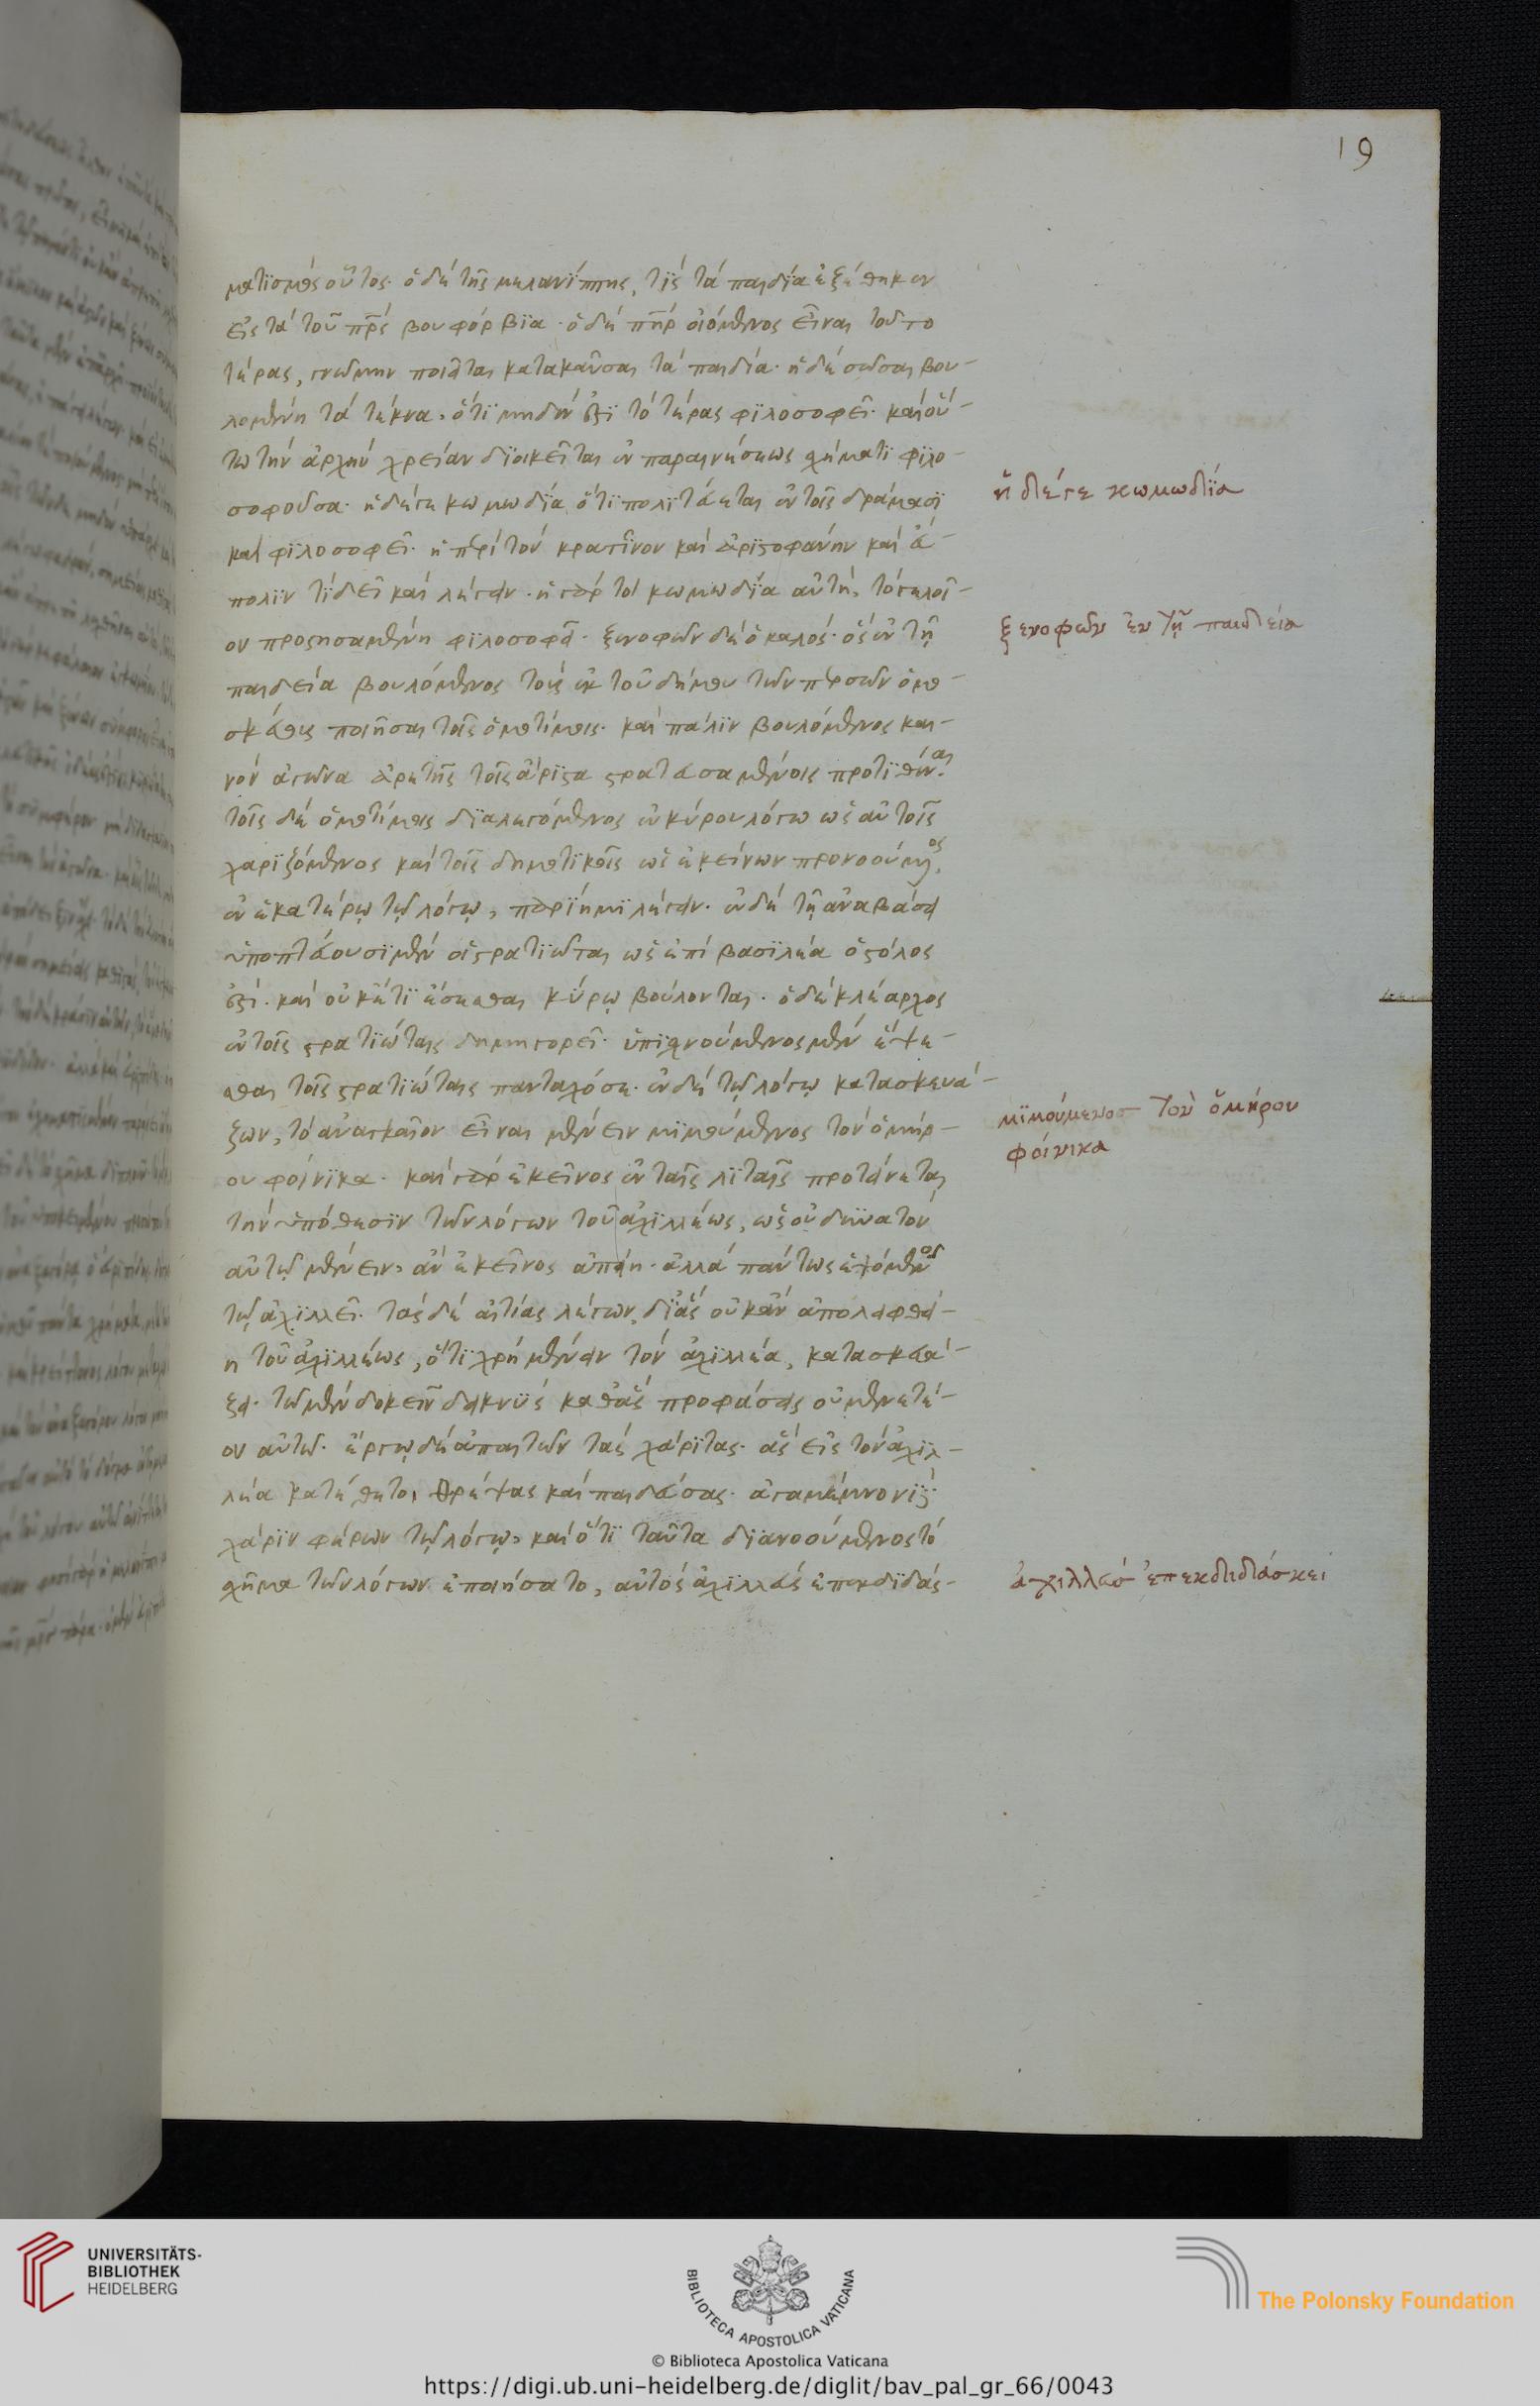 19
ματισμὸς οὗτος· ὁ δὲ τῆς μελανίππης, τίς τὰ παιδία ἐξέθηκεν
εἰς τὰ τοῦ πρς βουφόρβια· ὁ δὲ πὴρ οἰόμενος εἶναι τοῦτο
τέρας, γνώμην ποιεῖται κατακαῦσαι τὰ παιδία· ἡ δὲ σῶσαι βου-
λομένη τὰ τέκνα, ὅτι μηδέν ἐστι τὸ τέρας φιλοσοφεῖ· καὶ οὕ-
τω τὴν ἀρχὴν χρείαν διοικεῖται ἐν παραινέσεως σχήματι φιλο-
σοφοῦσα· ἡ δέ γε κωμωδία ὅτι πολιτεύεται ἐν τοῖς δράμασι
καὶ φιλοσοφεῖ· ἡ περὶ τὸν κρατῖνον καὶ ἀριστοφάνην καὶ εὔ-
πολιν τί δεῖ καὶ λέγειν· ἡ γάρ τοι κωμωδία αὐτὴ, τὸ γελοῖ-
ον προστησαμένη φιλοσοφεῖ· ξενοφῶν δὲ ὁ καλός· ὃς ἐν τῇ
παιδεία βουλόμενος τοὺς ἐκ τοῦ δήμου τῶν περσῶν ὁμο-
σκεύους ποιῆσαι τοῖς ὁμοτίμοις· καὶ πάλιν βουλόμενος και-
νὸν ἀγῶνα ἀρετῆς τοῖς ἄριστα στρατευσαμένοις προτιθέναι·
τοῖς δὲ ὁμοτίμοις διαλεγόμενος ἐν κύρου λόγω ὡς αὐτοῖς
χαριζόμενος καὶ τοῖς δημοτικοῖς ὡς ἐκείνων προνοούμενος
ἐν ἑκατέρῳ τῷ λόγῳ, περιήμι λέγειν· ἐν δὲ τῇ ἀναβάσει
ὑποπτεύουσι μὲν οἱ στρατιῶται ὡς ἐπὶ βασιλέα ὁ στόλος
ἐστί· καὶ οὐκ ἔτι ἕπεσθαι κύρῳ βούλονται· ὁ δὲ κλέαρχος
ἐν τοῖς στρατιώταις δημηγορεῖ· ὑπισχνούμενος μὲν ἕψε-
σθαι τοῖς στρατιώταις πανταχόσε· ἐν δὲ τῷ λόγῳ κατασκευά-
ζων, τὸ ἀναγκαῖον εἶναι μένειν μιμούμενος τὸν ὁμήρ-
ου φοίνικα· καὶ γὰρ ἐκεῖνος ἐν ταῖς λιταῖς προτείνεται
τὴν ὑπόθεσιν τῶν λόγων τοῦ ἀχιλλέως, ὡς οὐ δυνατὸν
αὐτῷ μένειν, ἂν ἐκεῖνος ἀπίῃ· ἀλλὰ πάντως ἑψόμενος
τῷ ἀχιλλεῖ· τὰς δὲ αἰτίας λέγων, δι' ἃς οὐκ ἂν ἀπολειφθεί-
η τοῦ ἀχιλλέως, ὅτι χρὴ μένειν τὸν ἀχιλλέα, κατασκευά-
ζει· τῶ μὲν δοκεῖν δεικνὺς καθ' ἃς προφάσεις οὐ μενετέ-
ον αὐτῶ· ἔργῳ δὲ ἀπαιτῶν τὰς χάριτας· ἃς εἰς τὸν ἀχιλ-
λέα κατέθετο, θρέψας καὶ παιδεύσας· ἀγαμέμνονι
χάριν φέρων τῷ λόγῳ, καὶ ὅτι ταῦτα διανοούμενος τὸ
σχῆμα τῶν λόγων ἐποιήσατο, αὐτὸς ἀχιλλεὺς ἐπεκδιδάς-
ἡ δέ γε κωμωδία
ξενοφῶν ἐν τῇ παιδεία
μιμούμενος τὸν ὁμήρου
φοίνικα
ἀχιλλεὺς ἐπεκδιδάσκει
UNIVERSITÄTS-
BIBLIOTHEK
HEIDELBERG
BIBLIOTECA APOSTOLICA VATICANA
The Polonsky Foundation
© Biblioteca Apostolica Vaticana
https://digi.ub.uni-heidelberg.de/diglit/bav_pal_gr_66/0043